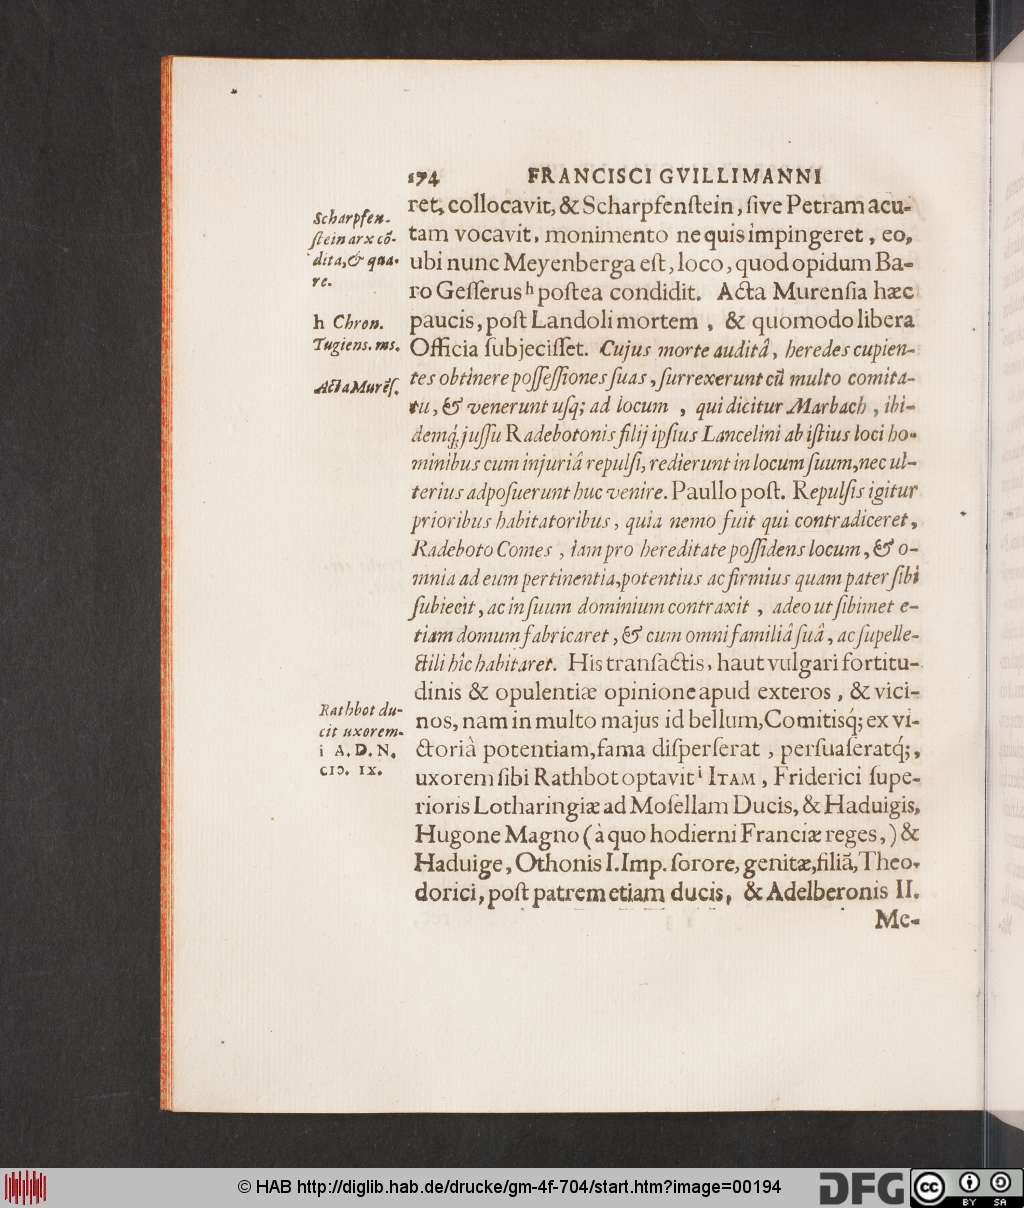 174 FRANCISCI GVILLIMANNI
ret, collocavit, & Scharpfenſtein, ſive Petram acu-
tam vocavit, monimento ne quis impingeret, eo,
ubi nunc Meyenberga eſt, loco, quod opidum Ba-
ro Geſſerus h poſtea condidit. Acta Murenſia hæc
paucis, poſt Landoli mortem, & quomodo libera
Officia ſubjeciſſet. Cujus morte auditâ, heredes cupien-
tes obtinere poſſeſſiones ſuas, ſurrexerunt cũ multo comita-
tu, & venerunt uſq; ad locum, qui dicitur Marbach, ibi-
demq́; juſſu Radebotonis filij ipſius Lancelini ab iſtius loci ho-
minibus cum injuriâ repulſi, redierunt in locum ſuum, nec ul-
terius adpoſuerunt huc venire. Paullo poſt. Repulſis igitur
prioribus habitatoribus, quia nemo fuit qui contradiceret,
Radeboto Comes, iam pro hereditate poſſidens locum, & o-
mnia ad eum pertinentia, potentius ac firmius quam pater ſibi
ſubiecit, ac in ſuum dominium contraxit, adeo ut ſibimet e-
tiam domum fabricaret, & cum omni familiâ ſuâ, ac ſupelle-
ctili hîc habitaret. His tranſactis, haut vulgari fortitu-
dinis & opulentiæ opinione apud exteros, & vici-
nos, nam in multo majus id bellum, Comitisq́; ex vi-
ctoriâ potentiam, fama diſperſerat, perſuaſeratq́;,
uxorem ſibi Rathbot optavit i ITAM, Friderici ſupe-
rioris Lotharingiæ ad Moſellam Ducis, & Haduigis,
Hugone Magno (à quo hodierni Franciæ reges,) &
Haduige, Othonis I. Imp. ſorore, genitæ, filiã, Theo-
dorici, poſt patrem etiam ducis, & Adelberonis II.
Me-
Scharpfen-
ſtein arx cõ-
dita, & qua-
re.
h Chron.
Tugiens. ms.
Acta Murẽſ.
Rathbot du-
cit uxorem.
i A. D. N.
CIↃ. IX.
© HAB http://diglib.hab.de/drucke/gm-4f-704/start.htm?image=00194
DFG
cc
BY SA